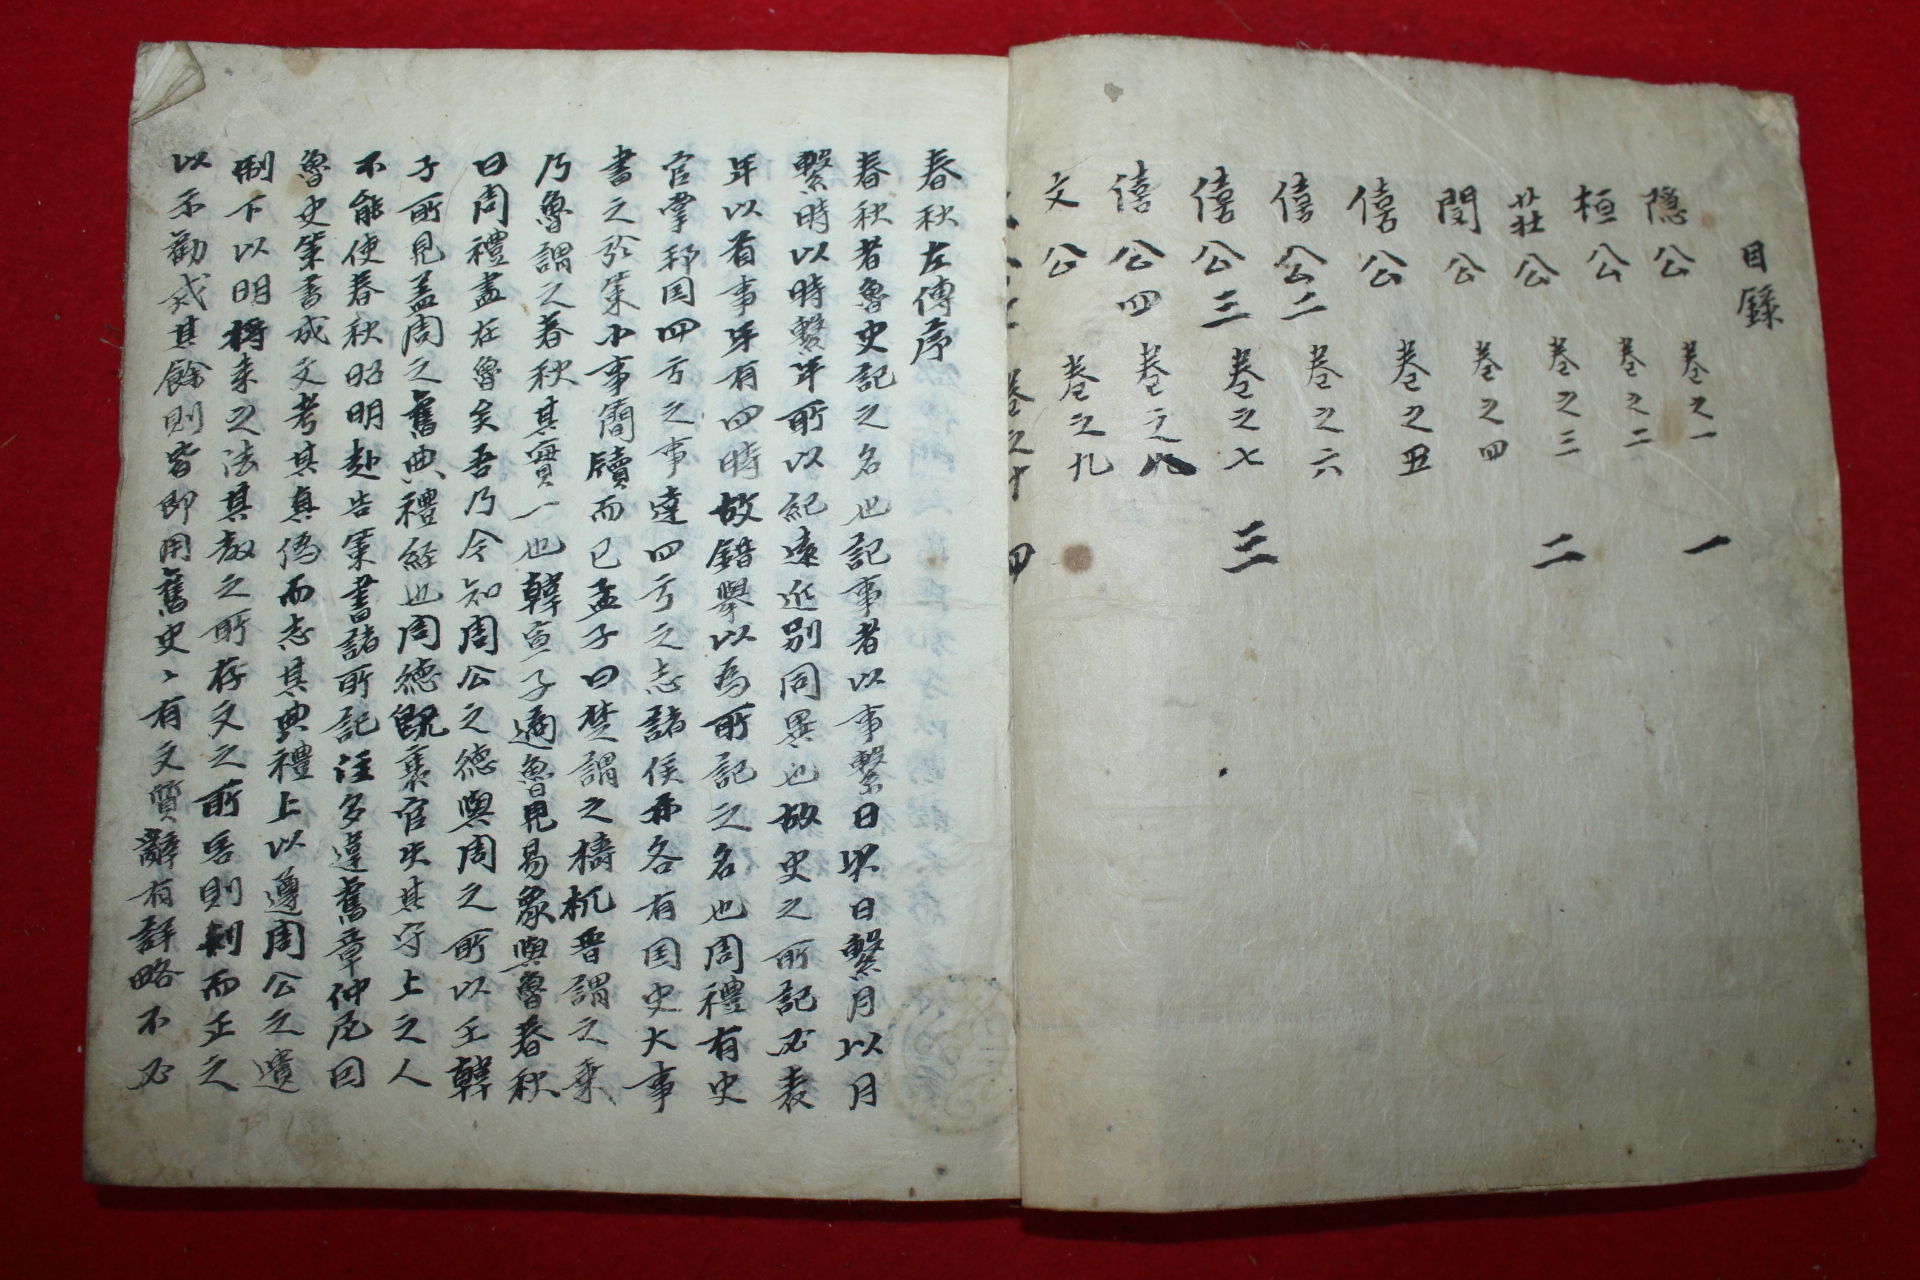 目錄
隱公 卷之一 一
桓公 卷之二
莊公 卷之三 二
閔公 卷之四
僖公 卷之五
僖公二 卷之六
僖公三 卷之七 三
僖公四 卷之八
文公 卷之九
卷之十 四
春秋左傳序
春秋者魯史記之名也記事者以事繫日以日繫月以月
繫時以時繫年所以紀遠近別同異也故史之所記必表
年以首事年有四時故錯舉以爲所記之名也周禮有史
官掌邦国四方之事達四方之志諸侯亦各有国史大事
書之於策小事簡牘而已孟子曰楚謂之檮杌晋謂之乘
乃魯謂之春秋其實一也韓宣子適魯見易象與魯春秋
曰周禮盡在魯矣吾乃今知周公之德與周之所以王韓
子所見盖周之舊典禮経也周德旣衰官失其守上之人
不能使春秋昭明赴告策書諸所記注多違舊章仲尼因
魯史策書成文考其真偽而志其典禮上以遵周公之遺
制下以明将来之法其教之所存文之所害則刊而正之
以示勸戒其餘則皆即用舊史〻有文質辭有詳略不必